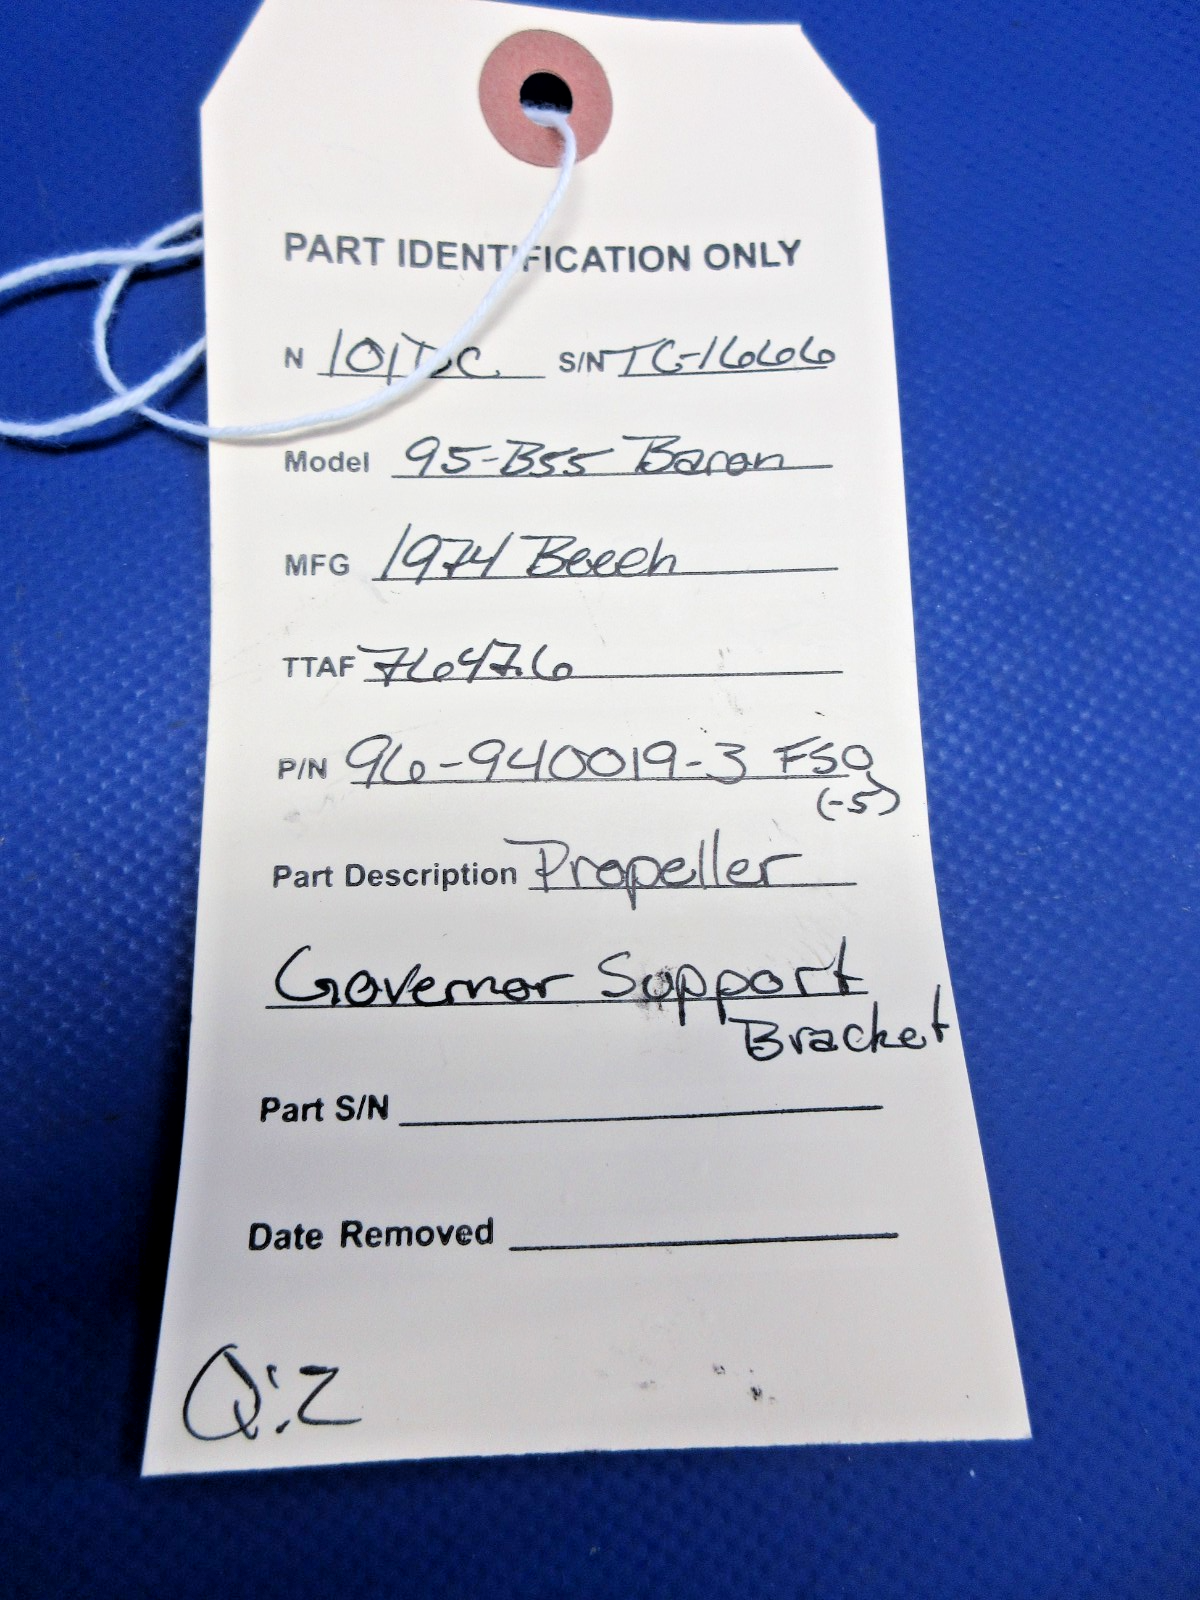 PART IDENTIFICATION ONLY
N 101DC S/N TC-1666
Model 95-B55 Baron
MFG 1974 Beech
TTAF 7647.6
P/N 96-940019-3 FSO
(-5)
Part Description Propeller
Governor Support
Bracket
Part S/N
Date Removed
Q:2